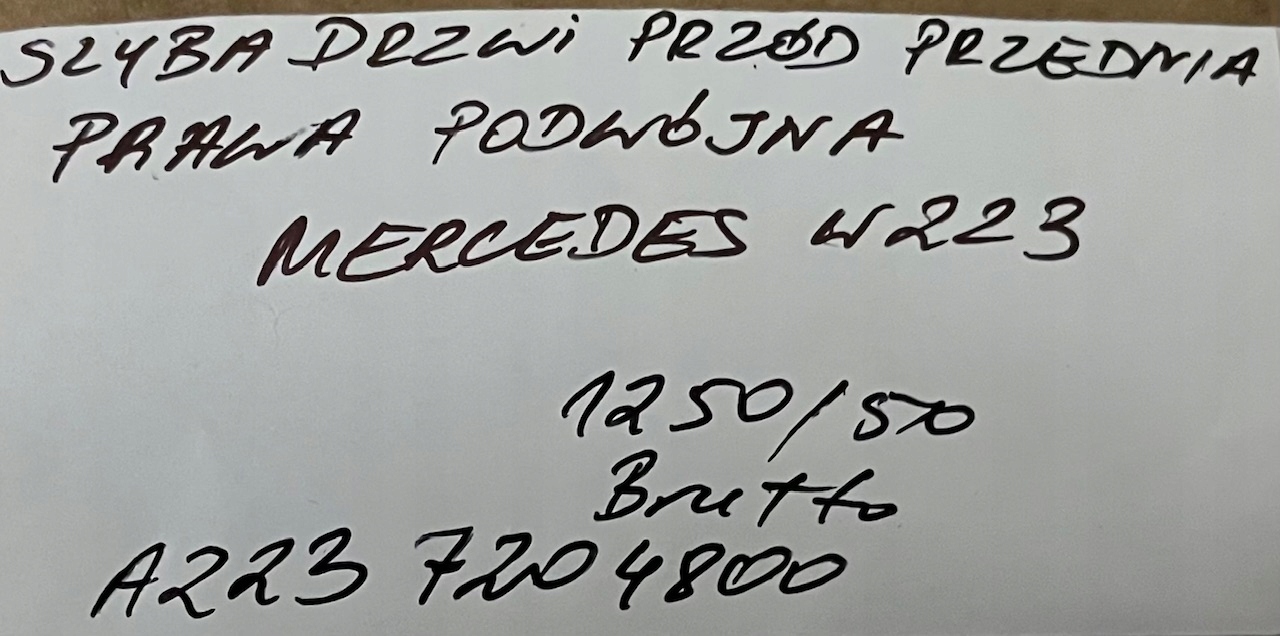 SZYBA DRZWi PRZÓD PRZEDNIA
PRAWA PODWÓJNA
MERCEDES W223
1250/50
Brutto
A223 720 4800